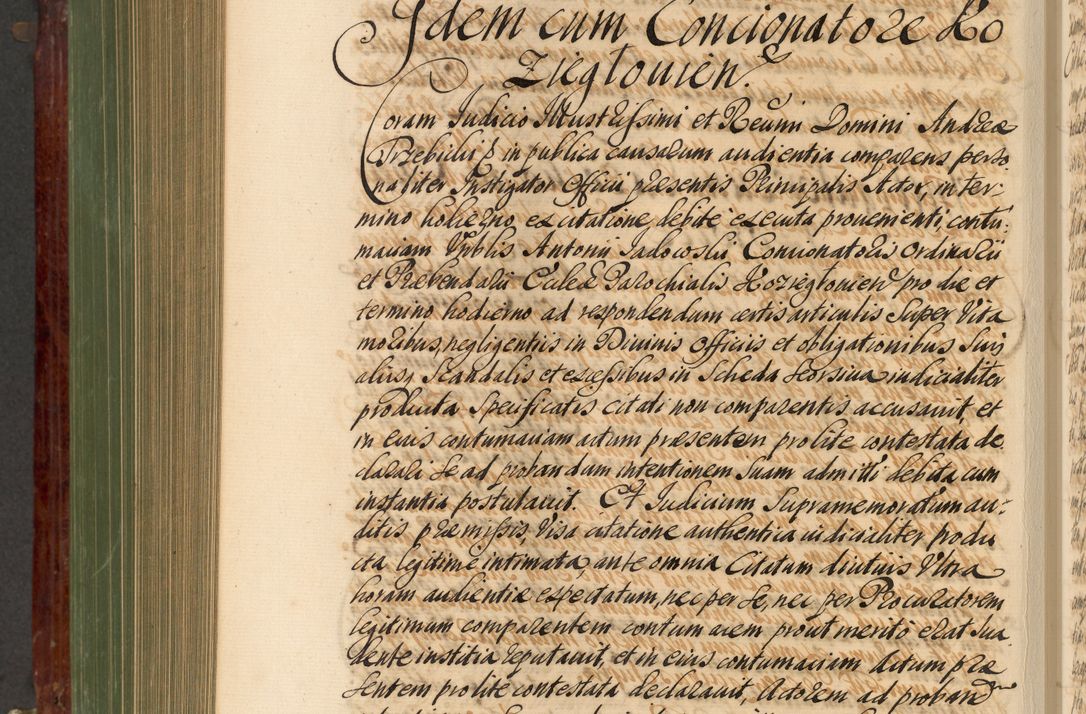 Idem cum Concionatore Ko
zieglouien.
Coram Iudicio Illustrissimi et Reūmi Domini Andreæ
Przebielii in publica causarum audientia comparens perso
naliter Instigator Officii præsentis Principalis Actor, in ter:
mino hodierno, ex citatione debite executa prouenienti, contu:
maciam Vnblis Antonii Sadowskii Concionatoris Ordinarii
et Præbendarii Eccleæ Parochialis Kozieglouien pro die et
termino hodierno ad respondendum certis articulis super Vita
moribus, negligentiis in Diuinis Officiis et obligationibus Suis
aliisq Scandalis et excessibus in Scheda Seorsiua iudicialiter
producta Specificatis citati non comparentis accusauit, et
in eius contumaciam actum præsentem pro lite contestata de
clarari se ad probandum intentionem Suam admitti debita cum
instantia postulauit. Et Iudicium Supramemoratum au:
ditis præmissis, Visa citatione authentica iudicialiter produ
cta legitime intimata, ante omnia Citatum diutius Vltra
horam audientiæ expectatum, nec per Se, nec per Procuratorem
legitimum comparentem contumacem prout merito erat Sua
dente iustitia reputauit, et in eius contumaciam Actum præ
sentem pro lite contestata declarauit, Actorem ad proband